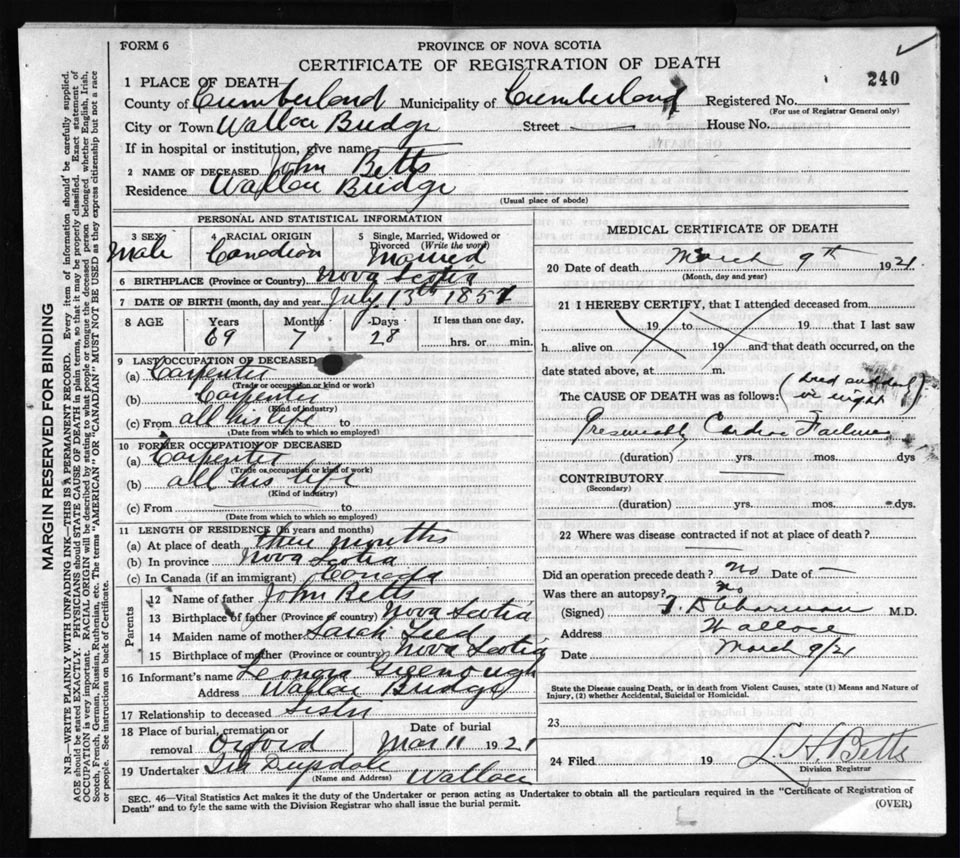 FORM 6
PROVINCE OF NOVA SCOTIA
CERTIFICATE OF REGISTRATION OF DEATH
240
1 PLACE OF DEATH
County of Cumberland Municipality of Cumberland Registered No.
(For use of Registrar General only)
City or Town Wallace Bridge Street House No.
If in hospital or institution, give name
2 NAME OF DECEASED John Betts
Residence Wallace Bridge
(Usual place of abode)
PERSONAL AND STATISTICAL INFORMATION
3 SEX 4 RACIAL ORIGIN 5 Single, Married, Widowed or Divorced (Write the word)
Male Canadian Married
6 BIRTHPLACE (Province or Country) Nova Scotia
7 DATE OF BIRTH (month, day and year) July 13th 1851
8 AGE Years Months Days If less than one day,
69 7 28 hrs. or min.
9 LAST OCCUPATION OF DECEASED
(a) Carpenter
(Trade or occupation or kind or work)
(b) Carpenter
(Kind of industry)
(c) From all his life to
(Date from which to which so employed)
10 FORMER OCCUPATION OF DECEASED
(a) Carpenter
(Trade or occupation or kind of work)
(b) all his life
(Kind of industry)
(c) From to
(Date from which to which so employed)
11 LENGTH OF RESIDENCE (In years and months)
(a) At place of death three months
(b) In province Nova Scotia
(c) In Canada (if an immigrant) Canada
Parents
12 Name of father John Betts
13 Birthplace of father (Province or country) Nova Scotia
14 Maiden name of mother Sarah
15 Birthplace of mother (Province or country) Nova Scotia
16 Informant's name Greenough
Address Wallace Bridge
17 Relationship to deceased Sister
18 Place of burial, cremation or removal Oxford
Date of burial Mar 11 1921
19 Undertaker Wallace
(Name and Address)
MEDICAL CERTIFICATE OF DEATH
20 Date of death March 9th 1921
(Month, day and year)
21 I HEREBY CERTIFY, that I attended deceased from
19 to 19 that I last saw
h alive on 19 and that death occurred, on the
date stated above, at m.
The CAUSE OF DEATH was as follows: (died suddenly in night)
Presumably Cardiac Failure
(duration) yrs. mos. dys
CONTRIBUTORY
(Secondary)
(duration) yrs. mos. dys.
22 Where was disease contracted if not at place of death?
Did an operation precede death? No Date of
Was there an autopsy? No
(Signed) M.D.
Address Wallace
Date March 9/21
State the Disease causing Death, or in death from Violent Causes, state (1) Means and Nature of
Injury, (2) whether Accidental, Suicidal or Homicidal.
23
24 Filed 19 Betts
Division Registrar
SEC. 46—Vital Statistics Act makes it the duty of the Undertaker or person acting as Undertaker to obtain all the particulars required in the "Certificate of Registration of
Death" and to fyle the same with the Division Registrar who shall issue the burial permit.
(OVER)
MARGIN RESERVED FOR BINDING
N.B.—WRITE PLAINLY WITH UNFADING INK—THIS IS A PERMANENT RECORD. Every item of information should be carefully supplied.
AGE should be stated EXACTLY. PHYSICIANS should STATE CAUSE OF DEATH in plain terms, so that it may be properly classified. Exact statement of
OCCUPATION is very important. RACIAL ORIGIN will be described by stating to what people or tongue the deceased person belonged whether English, Irish,
Scotch, French, German, Russian, Ruthenian, etc. The terms "AMERICAN" OR "CANADIAN" MUST NOT BE USED as they express citizenship but not a race
or people. See instructions on back of Certificate.